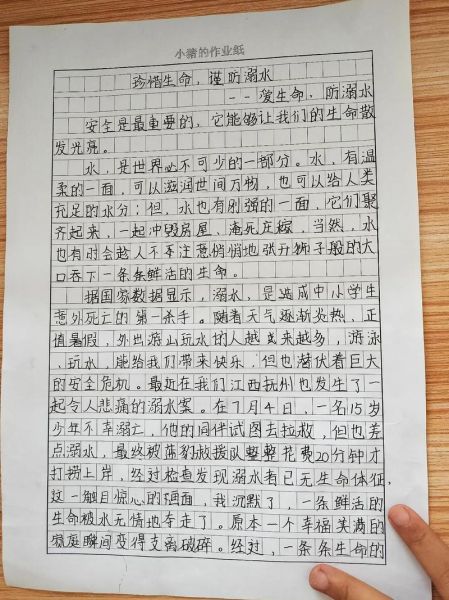 小猪的作业纸
珍惜生命，谨防溺水
--爱生命，防溺水
安全是最重要的，它能够让我们的生命散
发光亮。
水，是世界必不可少的一部分。水，有温
柔的一面，可以滋润世间万物，也可以给人类
充足的水分；但，水也有刚强的一面，它们聚
齐起来，一起冲毁房屋、淹死庄稼，当然，水
也有时会趁人不注意悄悄地张开狮子般的大
口吞下一条条鲜活的生命。
据国家数据显示，溺水，是造成中小学生
意外死亡的第一杀手。随着天气逐渐炎热，正
值暑假，外出游山玩水的人越来越多，游泳
、玩水，能给我们带来快乐，但也潜伏着巨大
的安全危机。最近在我们江西抚州也发生了一
起令人悲痛的溺水案。在7月4日，一名15岁
少年不幸溺亡，他的同伴试图去拉救，但也差
点溺水，最终被蓝豹救援队整整花费20分钟才
打捞上岸，经过检查发现溺水者已无生命体征，
这一触目惊心的画面，我沉默了，一条鲜活的
生命被水无情地夺走了。原本一个幸福美满的
家庭瞬间变得支离破碎。经过，一条条生命的